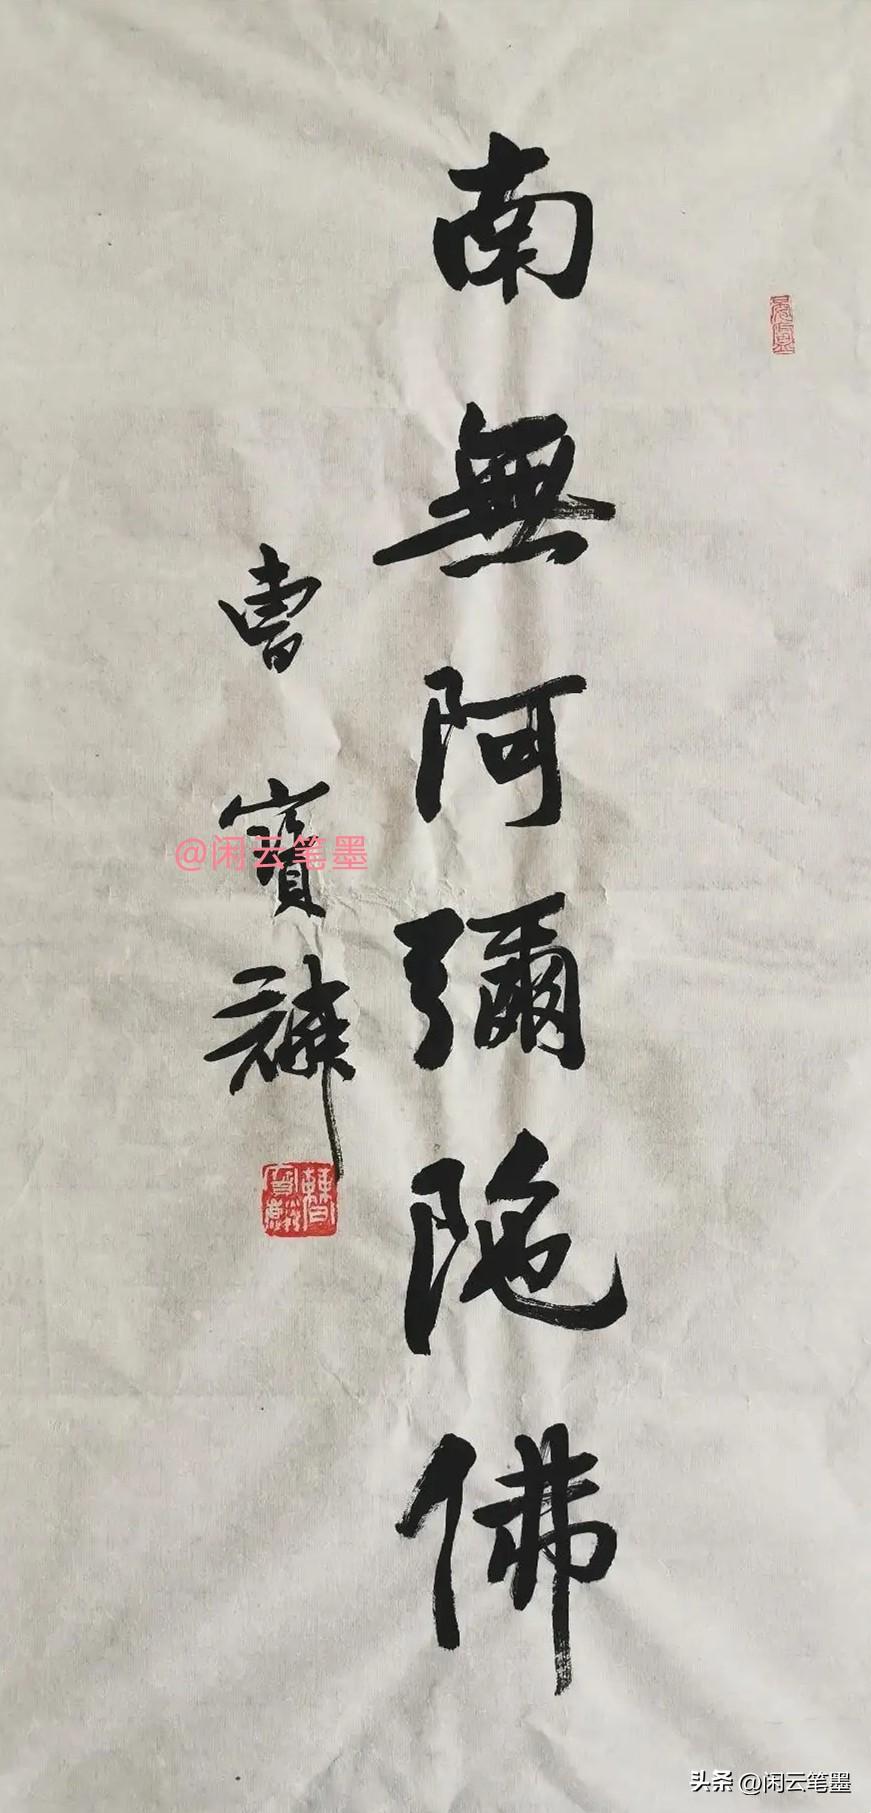 南無阿彌陀佛
曹寶麟
@闲云笔墨
头条 @闲云笔墨